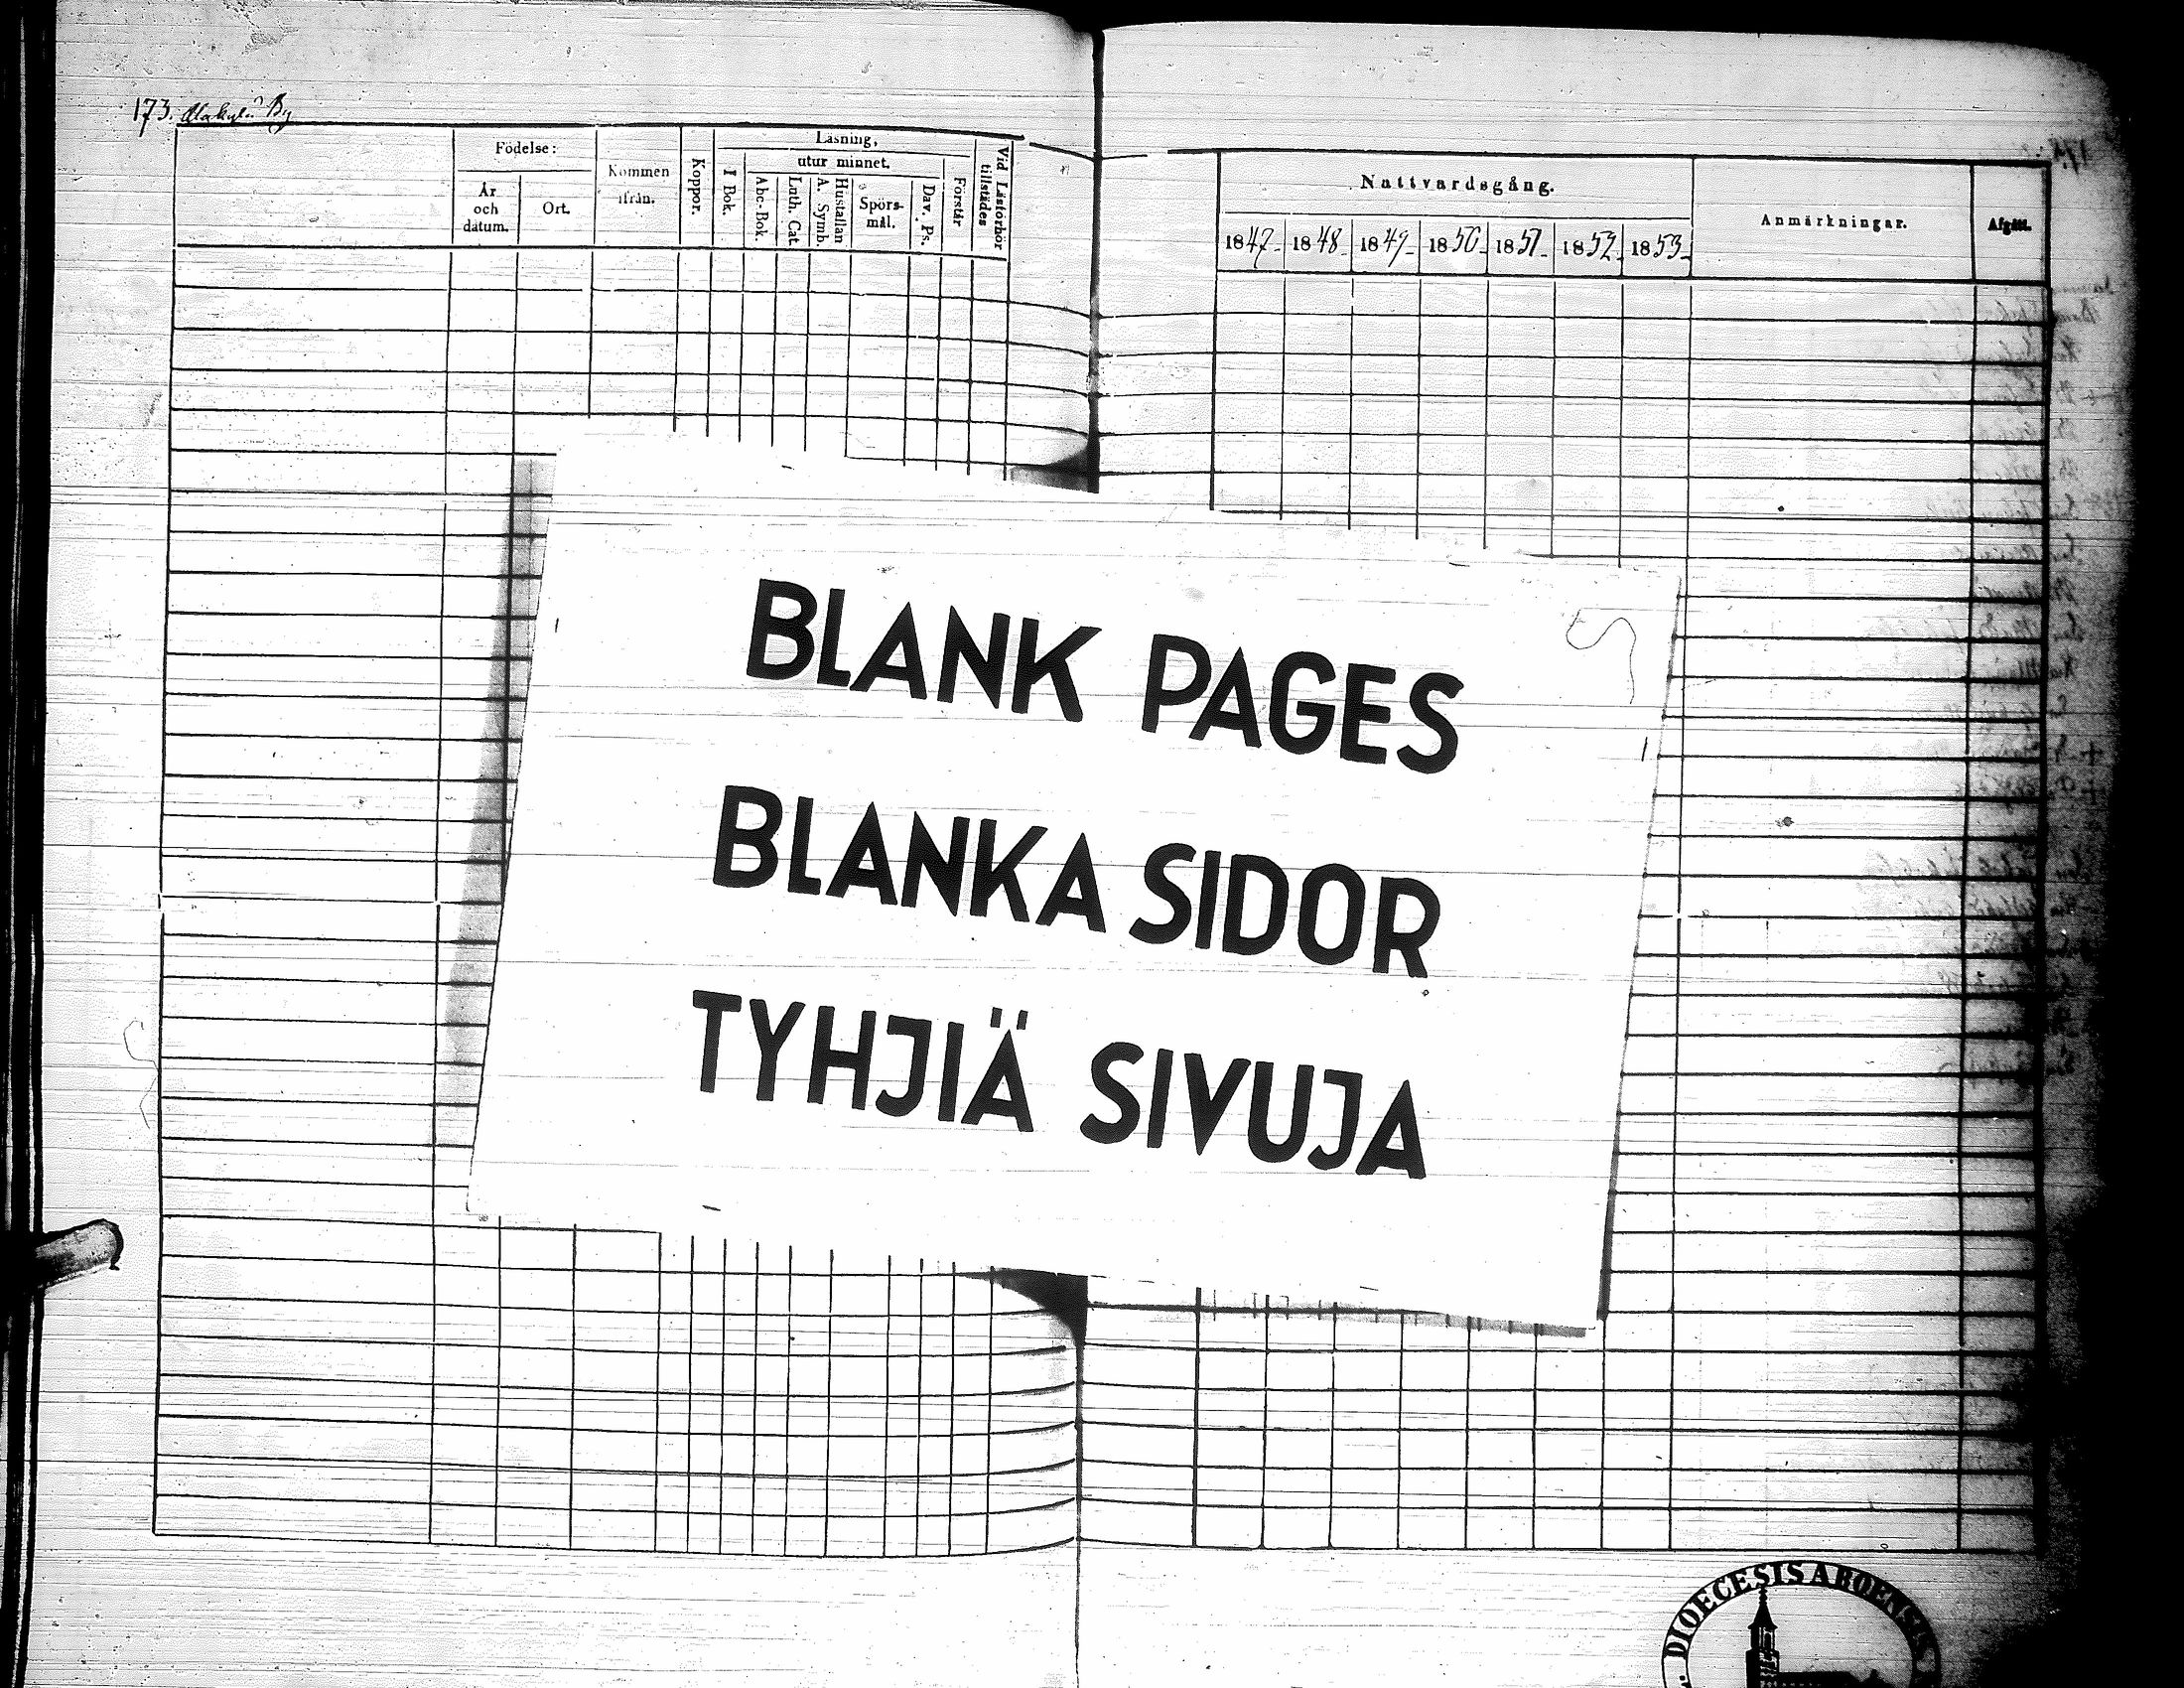 173. Alakylä By
Födelse:
År
och
datum.
Ort.
Kommen
ifrån.
Koppor.
Läsning,
I Bok.
utur minnet.
Abc-Bok.
Luth. Cat.
Hustaflan
A. Symb.
Spörs-
mål.
Dav. Ps.
Förstår
Vid Läsförhör
tillstädes
Nattvardsgång.
1847 1848 1849 1850 1851 1852 1853
Anmärkningar.
Afgått.
BLANK PAGES
BLANKA SIDOR
TYHJIÄ SIVUJA
DIOECESIS ABOENSIS